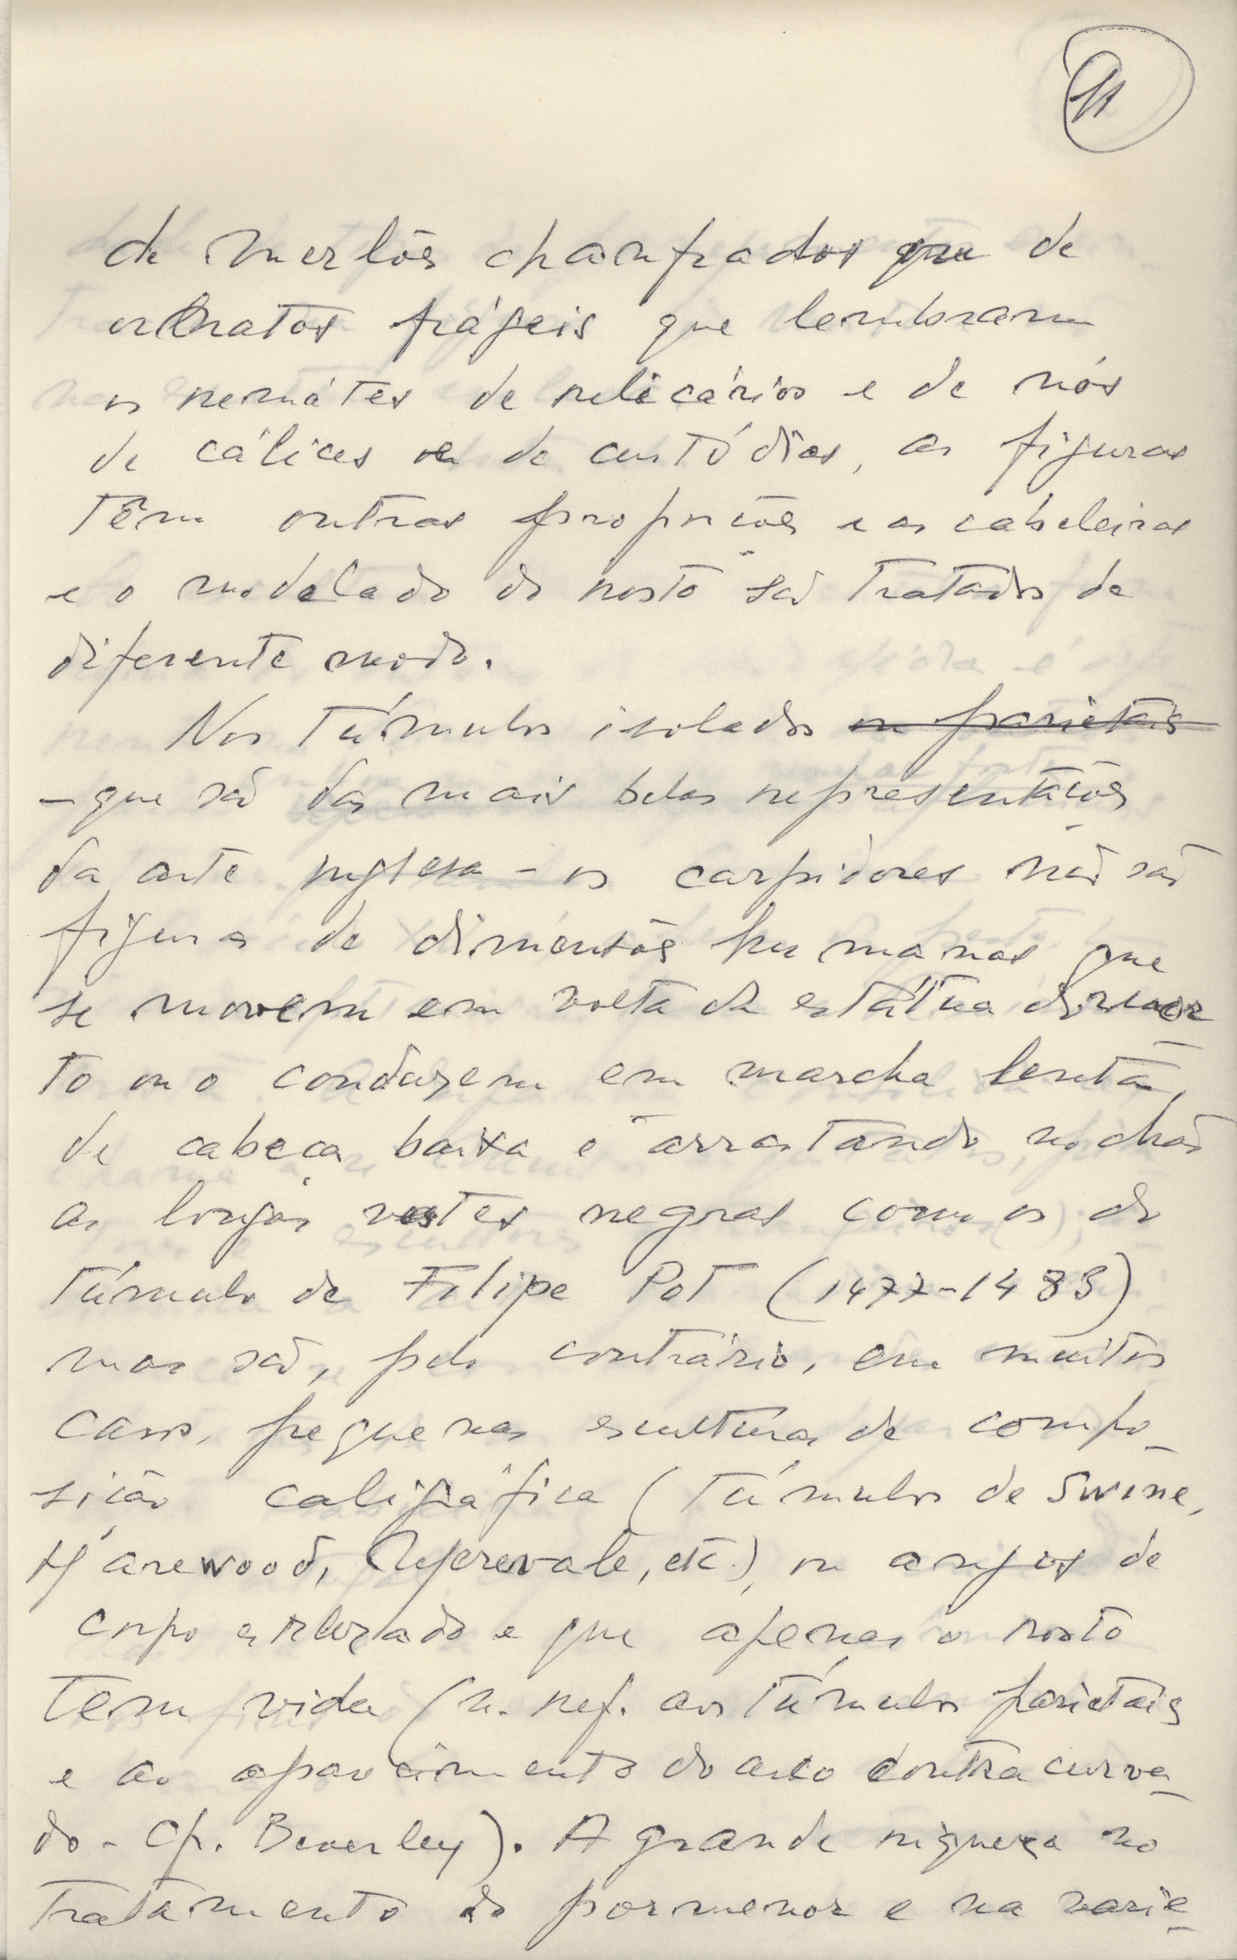 11
de merlões chanfrados que de
ornatos frágeis que lembram
os remátes de relicários e de nós
de cálices ou de custódias, as figuras
têm outras proporções e as cabeleiras
e o modelado do rosto são tratados de
diferente modo.
Nos túmulos isolados ou parietais
- que são das mais belas representações
da arte inglesa - os carpidores não são
figuras de dimensões humanas que
se movem em volta da estátua do mor
to ou o conduzem em marcha lenta,
de cabeça baixa e arrastando no chão
as longas vestes negras como os do
túmulo de Filipe Pot (1477-1483)
mas são, pelo contrário, em muitos
casos, pequenas esculturas de compo-
sição caligráfica (túmulos de Swine,
Harewood, etc.), ou anjos de
corpo esclerosado e que apenas o rosto
tem vida (n. ref. aos túmulos parietais
e ao aparecimento do arco contracurva-
do - Cp. Beverley). A grande riqueza no
tratamento do pormenor e na varie-